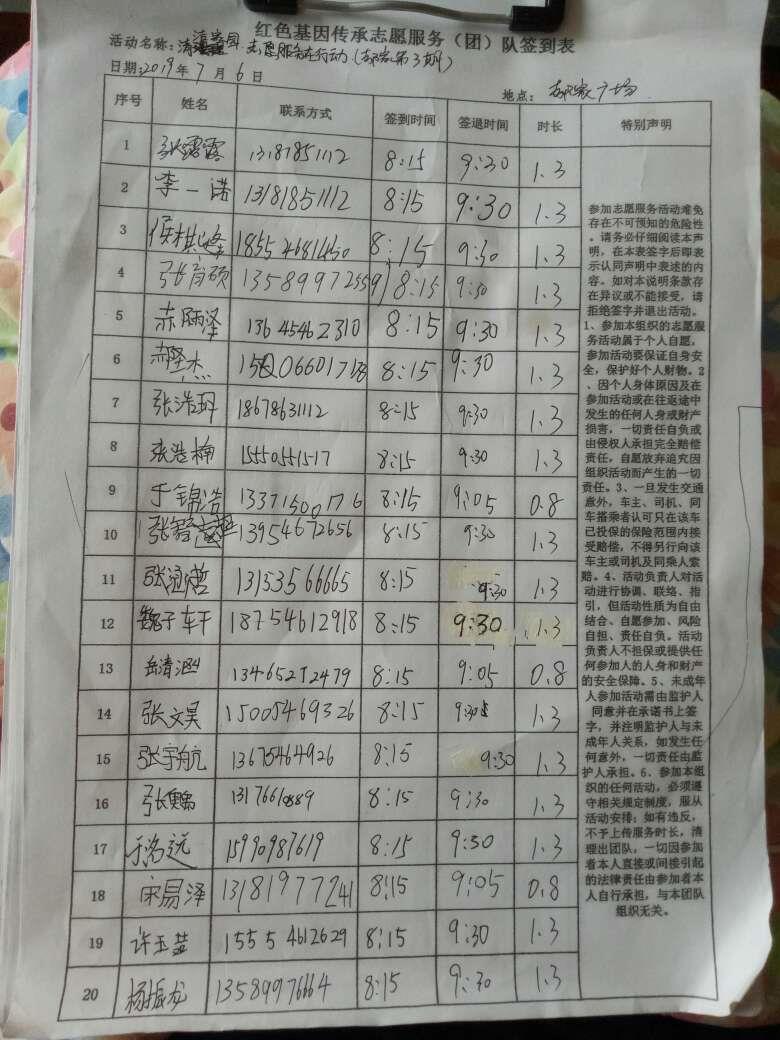 红色基因传承志愿服务（团）队签到表
活动名称: 志愿服务在行动(第3期)
日期:2019年7月6日
地点: 广场
序号 姓名 联系方式 签到时间 签退时间 时长 特别声明
1 张露露 13181851112 8:15 9:30 1.3
2 李一诺 13181851112 8:15 9:30 1.3
3 8:15 9:30 1.3
4 张育硕 8:15 9:30 1.3
5 13645462310 8:15 9:30 1.3
6 8:15 9:30 1.3
7 张浩 18678631112 8:15 9:30 1.3
8 张浩楠 15550551517 8:15 9:30 1.3
9 于锦浩 13371500176 8:15 9:05 0.8
10 13954672656 8:15 9:30 1.3
11 13153566665 8:15 9:30 1.3
12 魏子轩 18754612918 8:15 9:30 1.3
13 岳清 13465212479 8:15 9:05 0.8
14 张文昊 15005469326 8:15 9:30 1.3
15 张宇航 13675464926 8:15 9:30 1.3
16 8:15 9:30 1.3
17 15990987619 8:15 9:30 1.3
18 宋易泽 13181977241 8:15 9:05 0.8
19 许玉 15554612629 8:15 9:30 1.3
20 杨振龙 13589976664 8:15 9:30 1.3
参加志愿服务活动难免
存在不可预知的危险性
。请务必仔细阅读本声
明，在本表签字后即表
示认同声明中表述的内
容。如对本说明条款存
在异议或不能接受，请
拒绝签字并退出活动。
1、参加本组织的志愿服
务活动属于个人自愿，
参加活动要保证自身安
全，保护好个人财物。2
、因个人身体原因及在
参加活动或在往返途中
发生的任何人身或财产
损害，一切责任自负或
由侵权人承担完全赔偿
责任，自愿放弃追究因
组织活动而产生的一切
责任。3、一旦发生交通
意外，车主、司机、同
车搭乘者认可只在该车
已投保的保险范围内接
受赔偿，不得另行向该
车主或司机及同乘人索
赔。4、活动负责人对活
动进行协调、联络、指
引，但活动性质为自由
结合、自愿参加、风险
自担、责任自负。活动
负责人不担保或提供任
何参加人的人身和财产
的安全保障。5、未成年
人参加活动需由监护人
同意并在承诺书上签
字，并注明监护人与未
成年人关系，如发生任
何意外，一切责任由监
护人承担。6、参加本组
织的任何活动，必须遵
守相关规定制度，服从
活动安排；如有违反，
不予上传服务时长，清
理出团队，一切因参加
者本人直接或间接引起
的法律责任由参加者本
人自行承担，与本团队
组织无关。